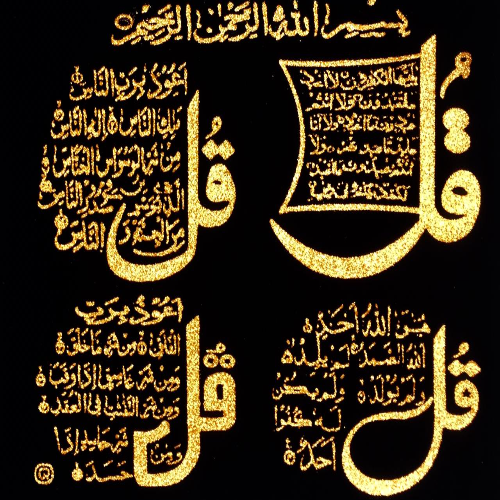 بسم الله الرحمن الرحيم
قل
يا أيها الكفرون لا أعبد
ما تعبدون ولا أنتم
عبدون ما أعبد ولا أنا
عابد ما عبدتم ولا
أنتم عبدون ما أعبد
لكم دينكم ولي دين
قل
اعوذ برب الناس
ملك الناس اله الناس
من شر الوسواس الخناس
الذي يوسوس في صدور الناس
من الجنة و الناس
قل
هو الله احد
الله الصمد لم يلد
ولم يولد ولم يكن
له كفوا
احد
قل
اعوذ برب
الفلق من شر ما خلق
ومن شر غاسق اذا وقب
ومن شر النفثت فى العقد
ومن شر حاسد اذا
حسد